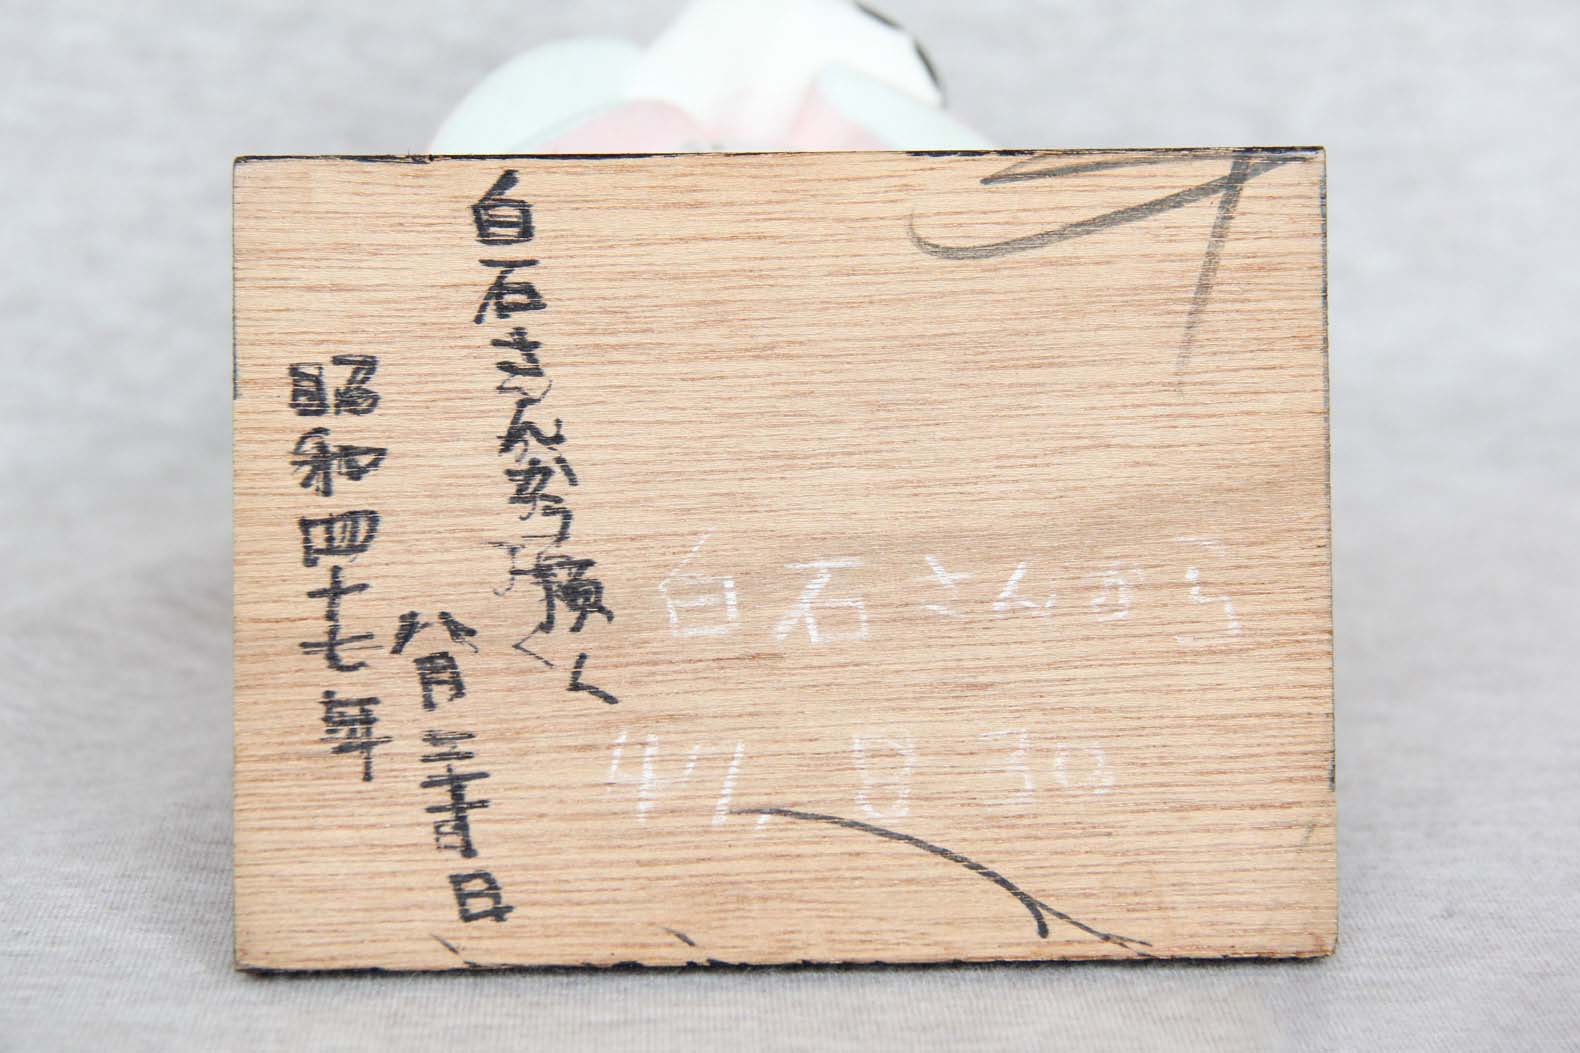 白石さんから頂く
昭和四十七年
八月三十日
白石さんから
47, 8 30